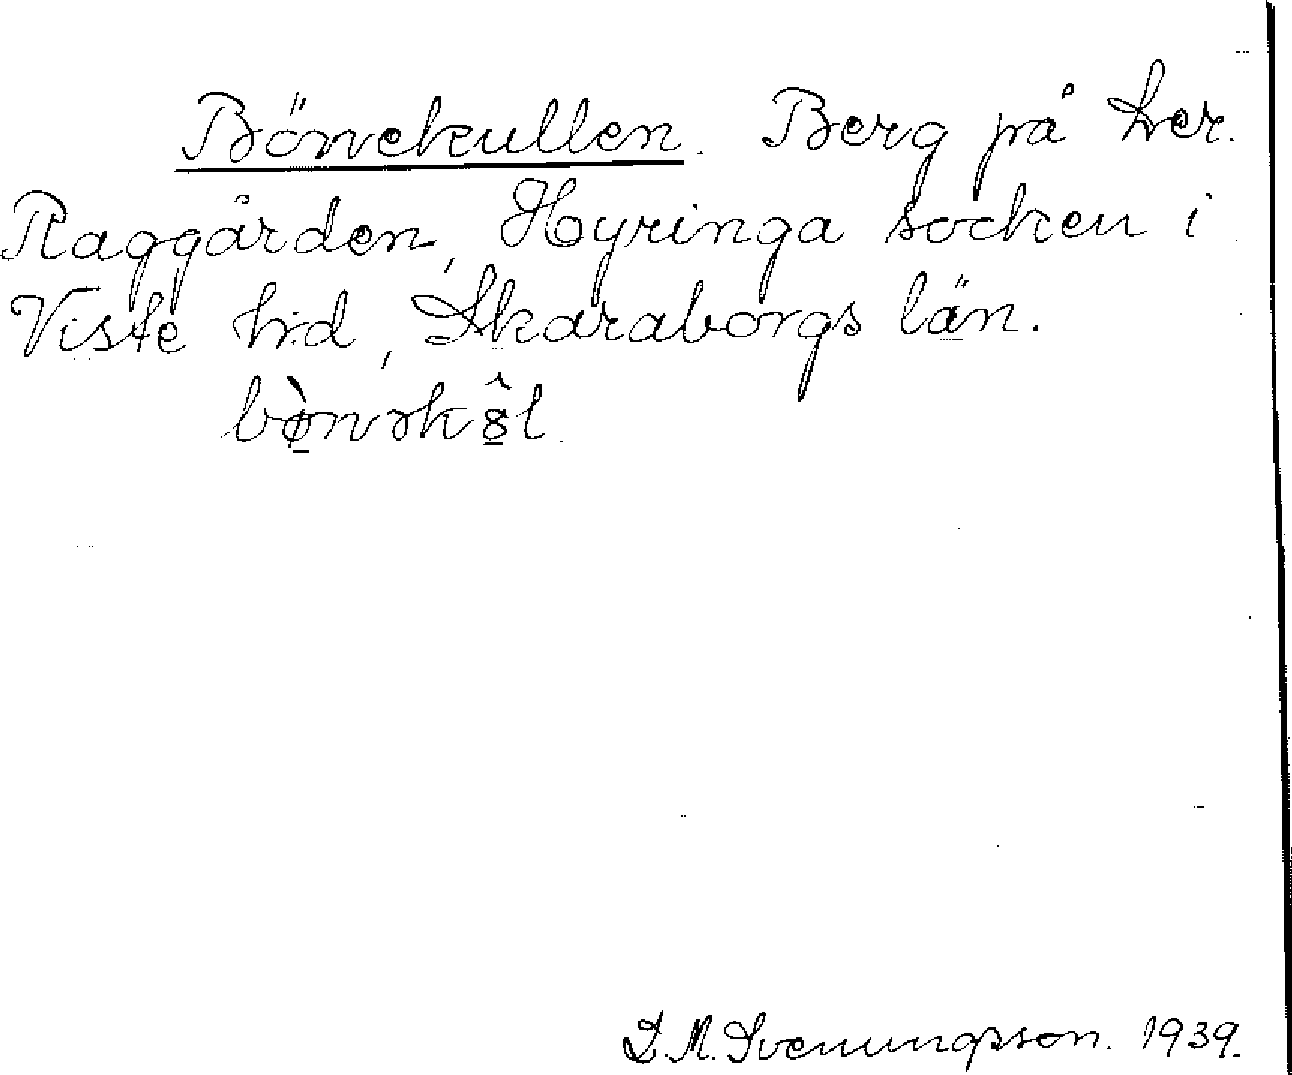 Bönekullen. Berg på ker.
Raggården, Hyringa socken i
Viste hd, Skaraborgs län.
S.M. Svenungsson. 1939.